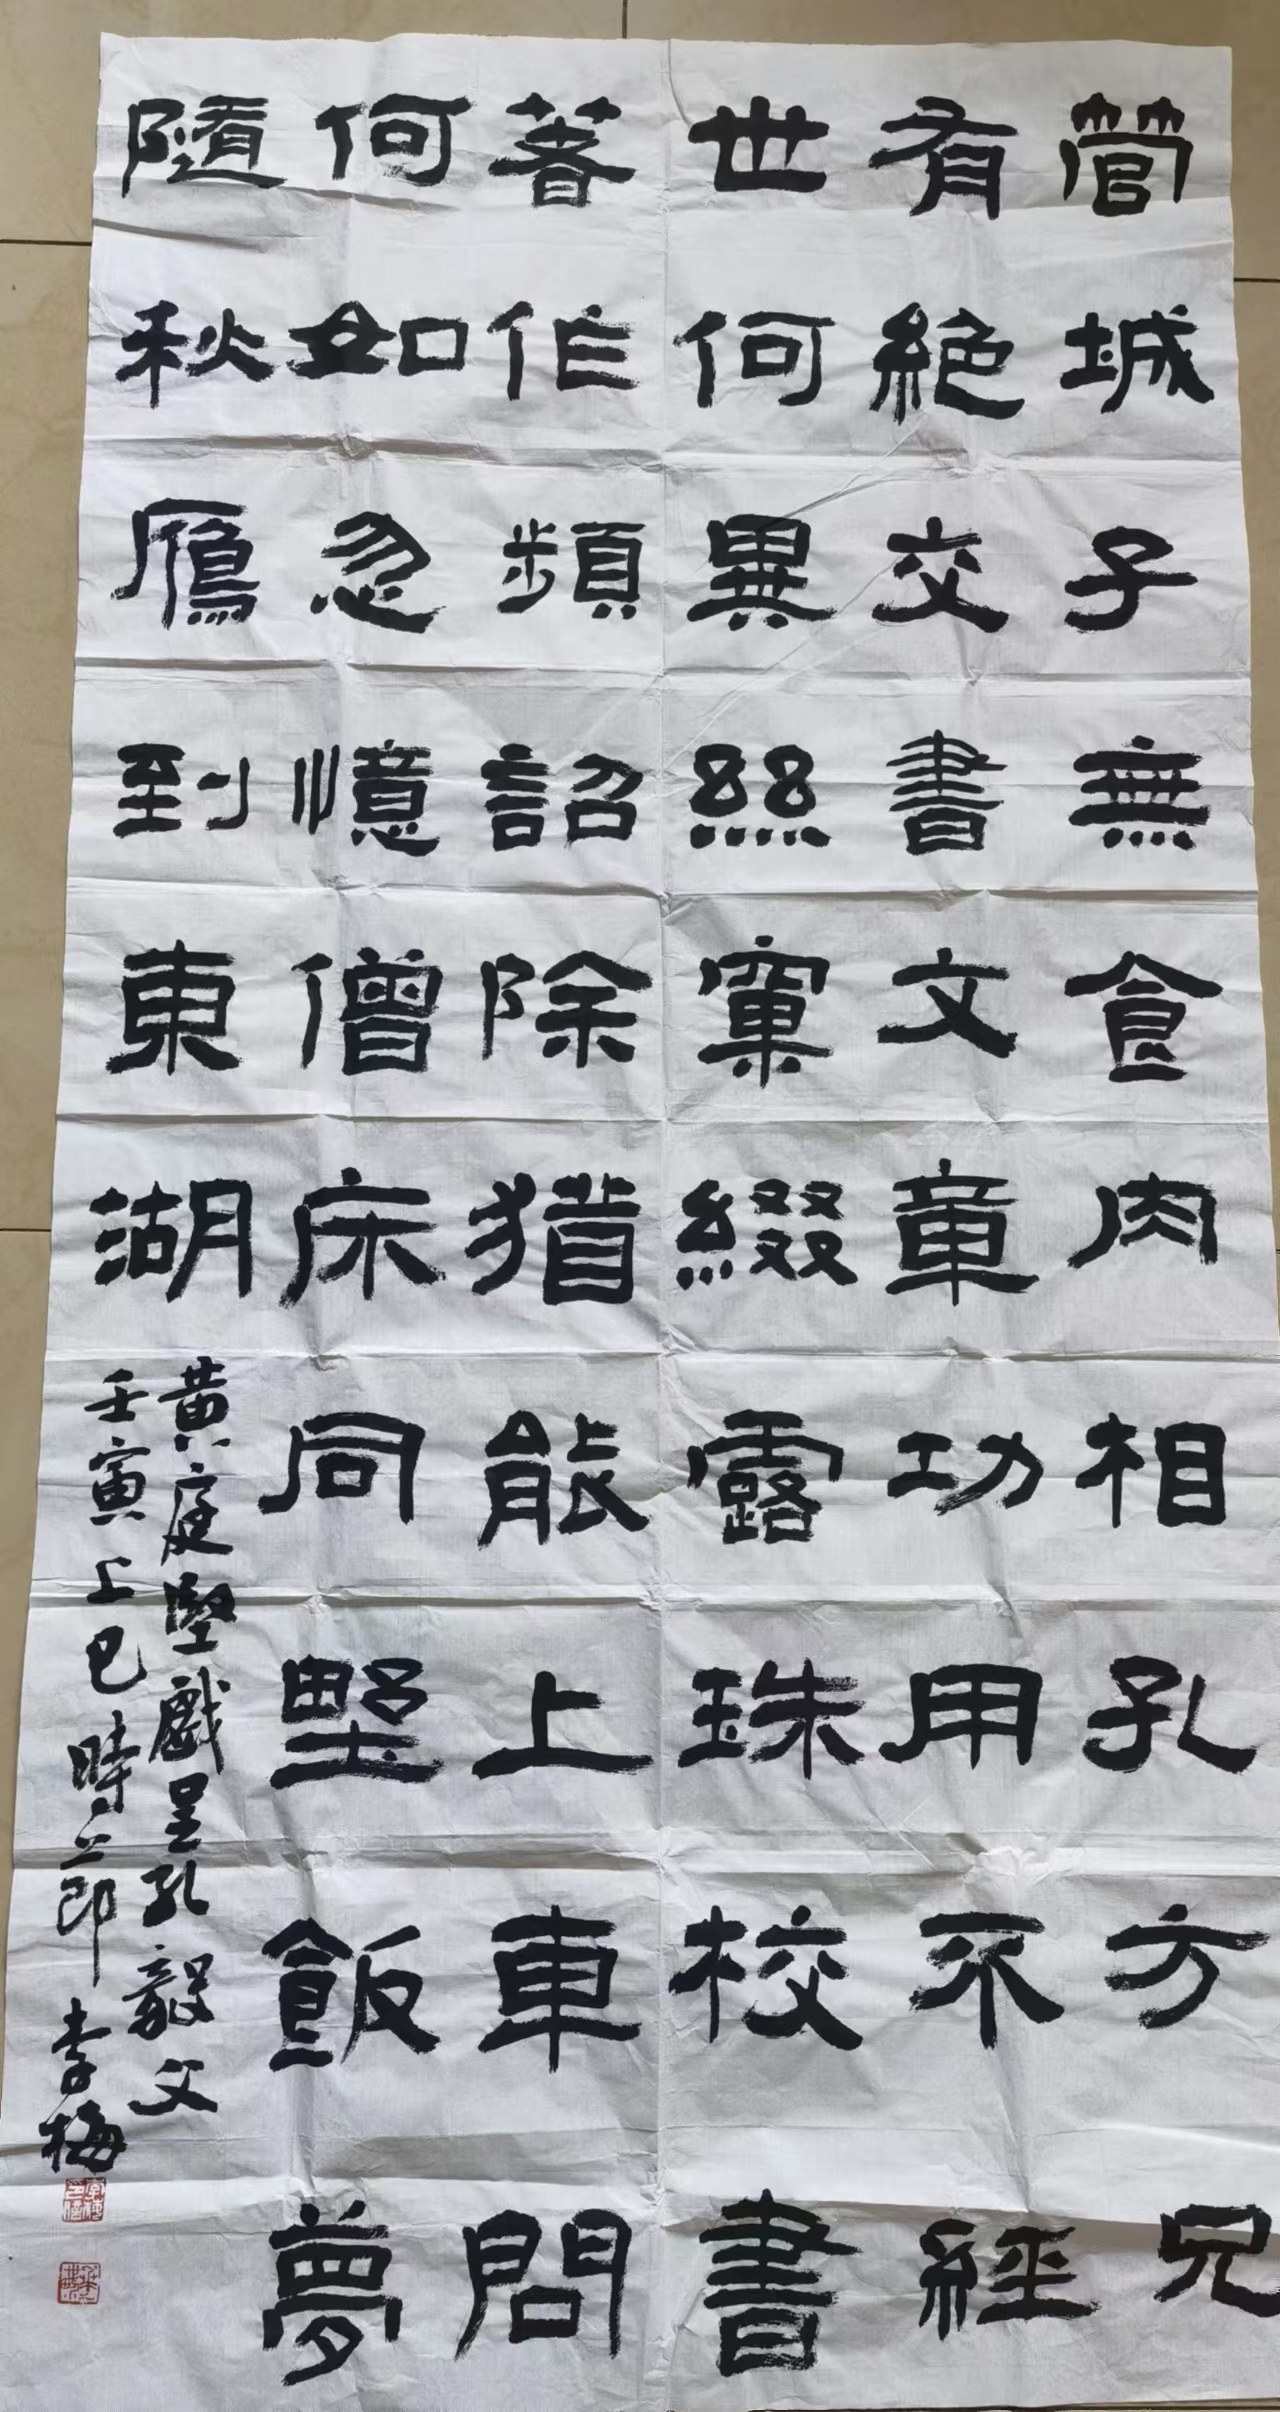 管城子無食肉相孔方兄
有絕交書文章功用不經
世何異絲窠綴露珠校書
著作頻詔除猶能上車問
何如忽憶僧床同野飯夢
隨秋雁到東湖
黃庭堅戲呈孔毅父
壬寅上巳時節李梅